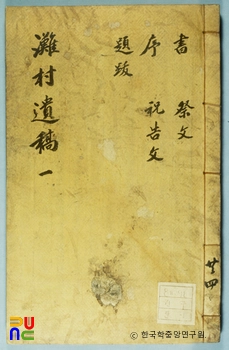 書 祭文
序 祝告文
題跋
灘村遺稿 一
廿四
PUNC
ⓒ 한국학중앙연구원